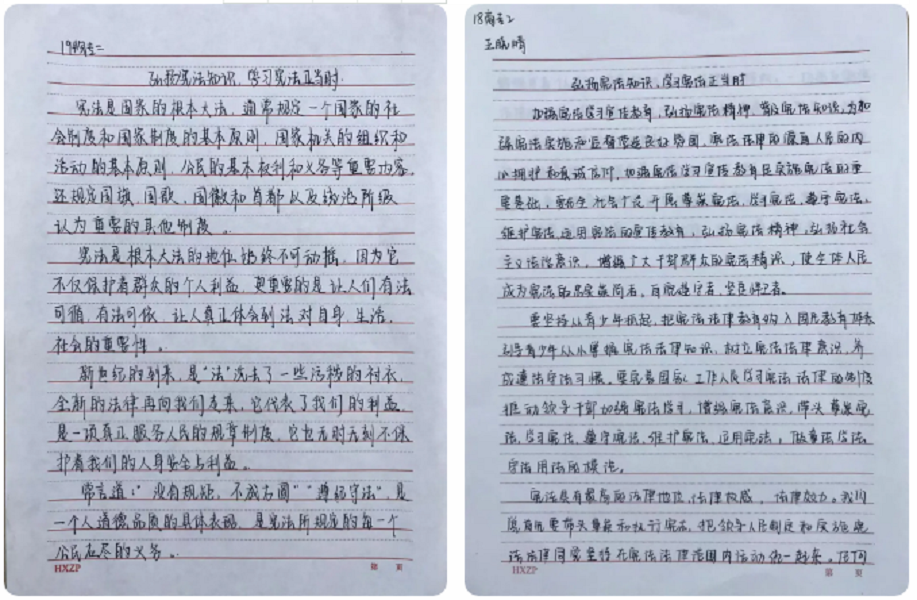 弘扬宪法知识，学习宪法正当时
宪法是国家的根本大法，通常规定一个国家的社
会制度和国家制度的基本原则，国家机关的组织和
活动的基本原则，公民的基本权利和义务等重要内容，
还规定国旗、国歌、国徽和首都以及统治阶级
认为重要的其他制度。
宪法是根本大法的地位始终不可动摇，因为它
不仅保护着群众的个人利益，更重要的是让人们有法
可循，有法可依，让人真正体会到法对自身、生活、
社会的重要性。
新世纪的到来，是“法”洗去了一些污秽的衬衣，
全新的法律再向我们走来，它代表了我们的利益，
是一项真正服务人民的规章制度，它也无时无刻不保
护着我们的人身安全与利益。
常言道：“没有规矩，不成方圆”“遵纪守法”，是
一个人道德品质的具体表现，是宪法所规定的每一个
公民应尽的义务。
HXZP 第 页
王晓晴
弘扬宪法知识，学习宪法正当时
加强宪法学习宣传教育，弘扬宪法精神、普及宪法知识，为加
强宪法实施和监督营造良好氛围，宪法法律的
拥护和真诚信仰，加强宪法学习宣传教育是实施宪法的重
要基础，要在全社会广泛开展尊崇宪法、学习宪法、遵守宪法、
维护宪法、运用宪法的宣传教育，弘扬宪法精神，弘扬社会
主义法治意识，增强广大干部群众的宪法意识，使全体人民
成为宪法的忠实崇尚者、自觉遵守者、坚定捍卫者。
要坚持从青少年抓起，把宪法法律教育纳入国民教育体系
引导青少年从小掌握宪法法律知识，树立宪法法律意识，养
成遵法守法习惯。要完善国家工作人员学习宪法法律的制度
推动领导干部加强宪法学习，增强宪法意识，带头尊崇宪
法、学习宪法、遵守宪法、维护宪法、运用宪法，做尊法学法
守法用法的模范。
宪法具有最高的法律地位、法律权威、法律效力。我们
HXZP 第 页